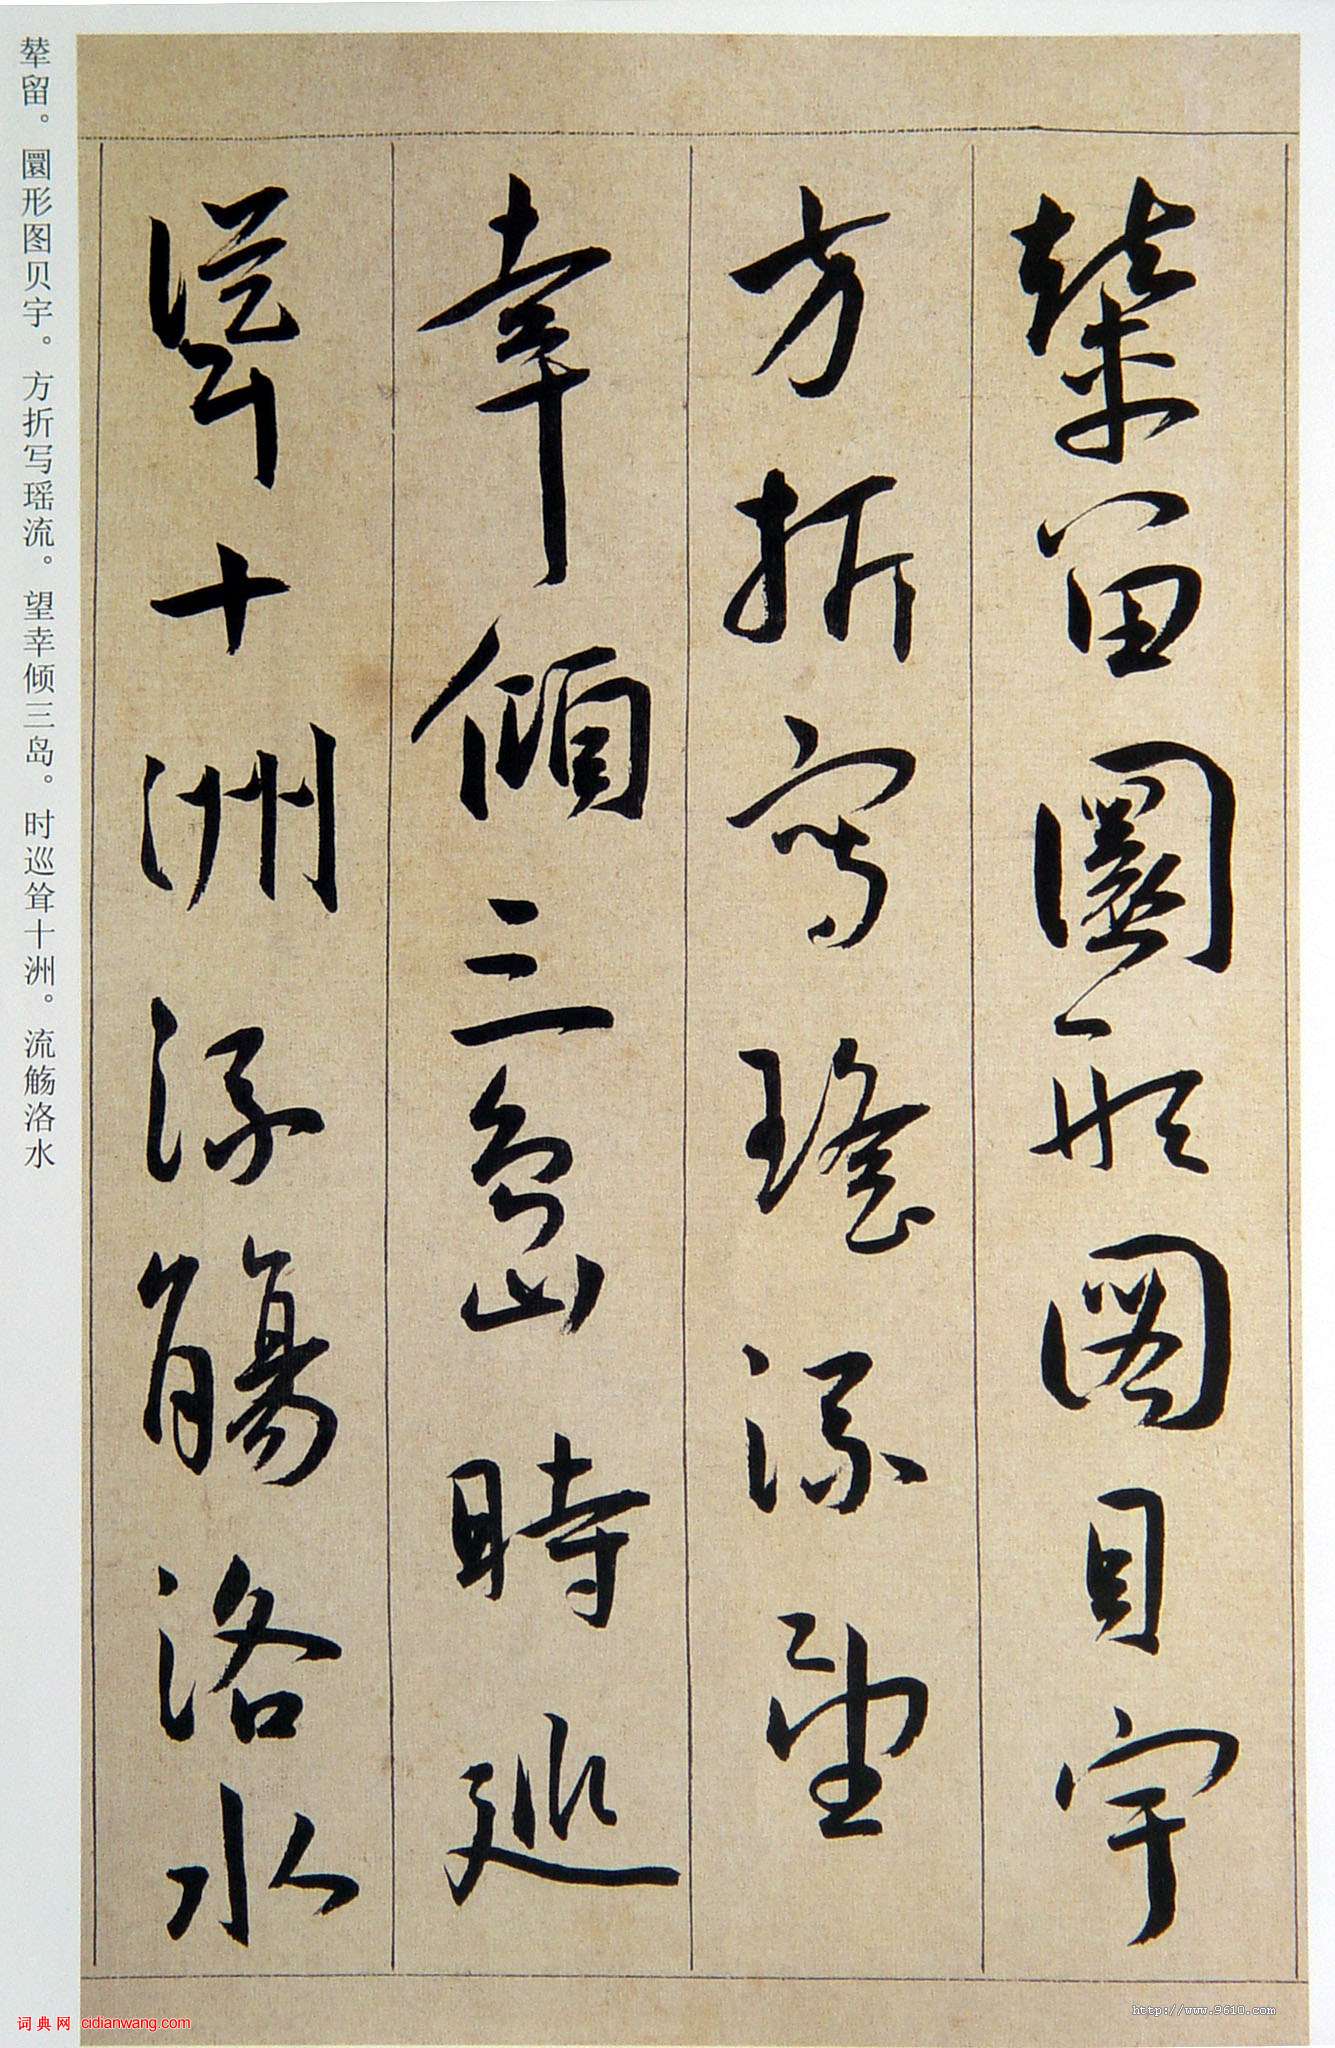 輦留圜形圖貝宇
方折寫瑤流望
幸傾三島時巡
聳十洲流觴洛水
辇留。圜形图贝宇。方折写瑶流。望幸倾三岛。时巡耸十洲。流觞洛水
词典网 cidianwang.com
http://www.9610.com